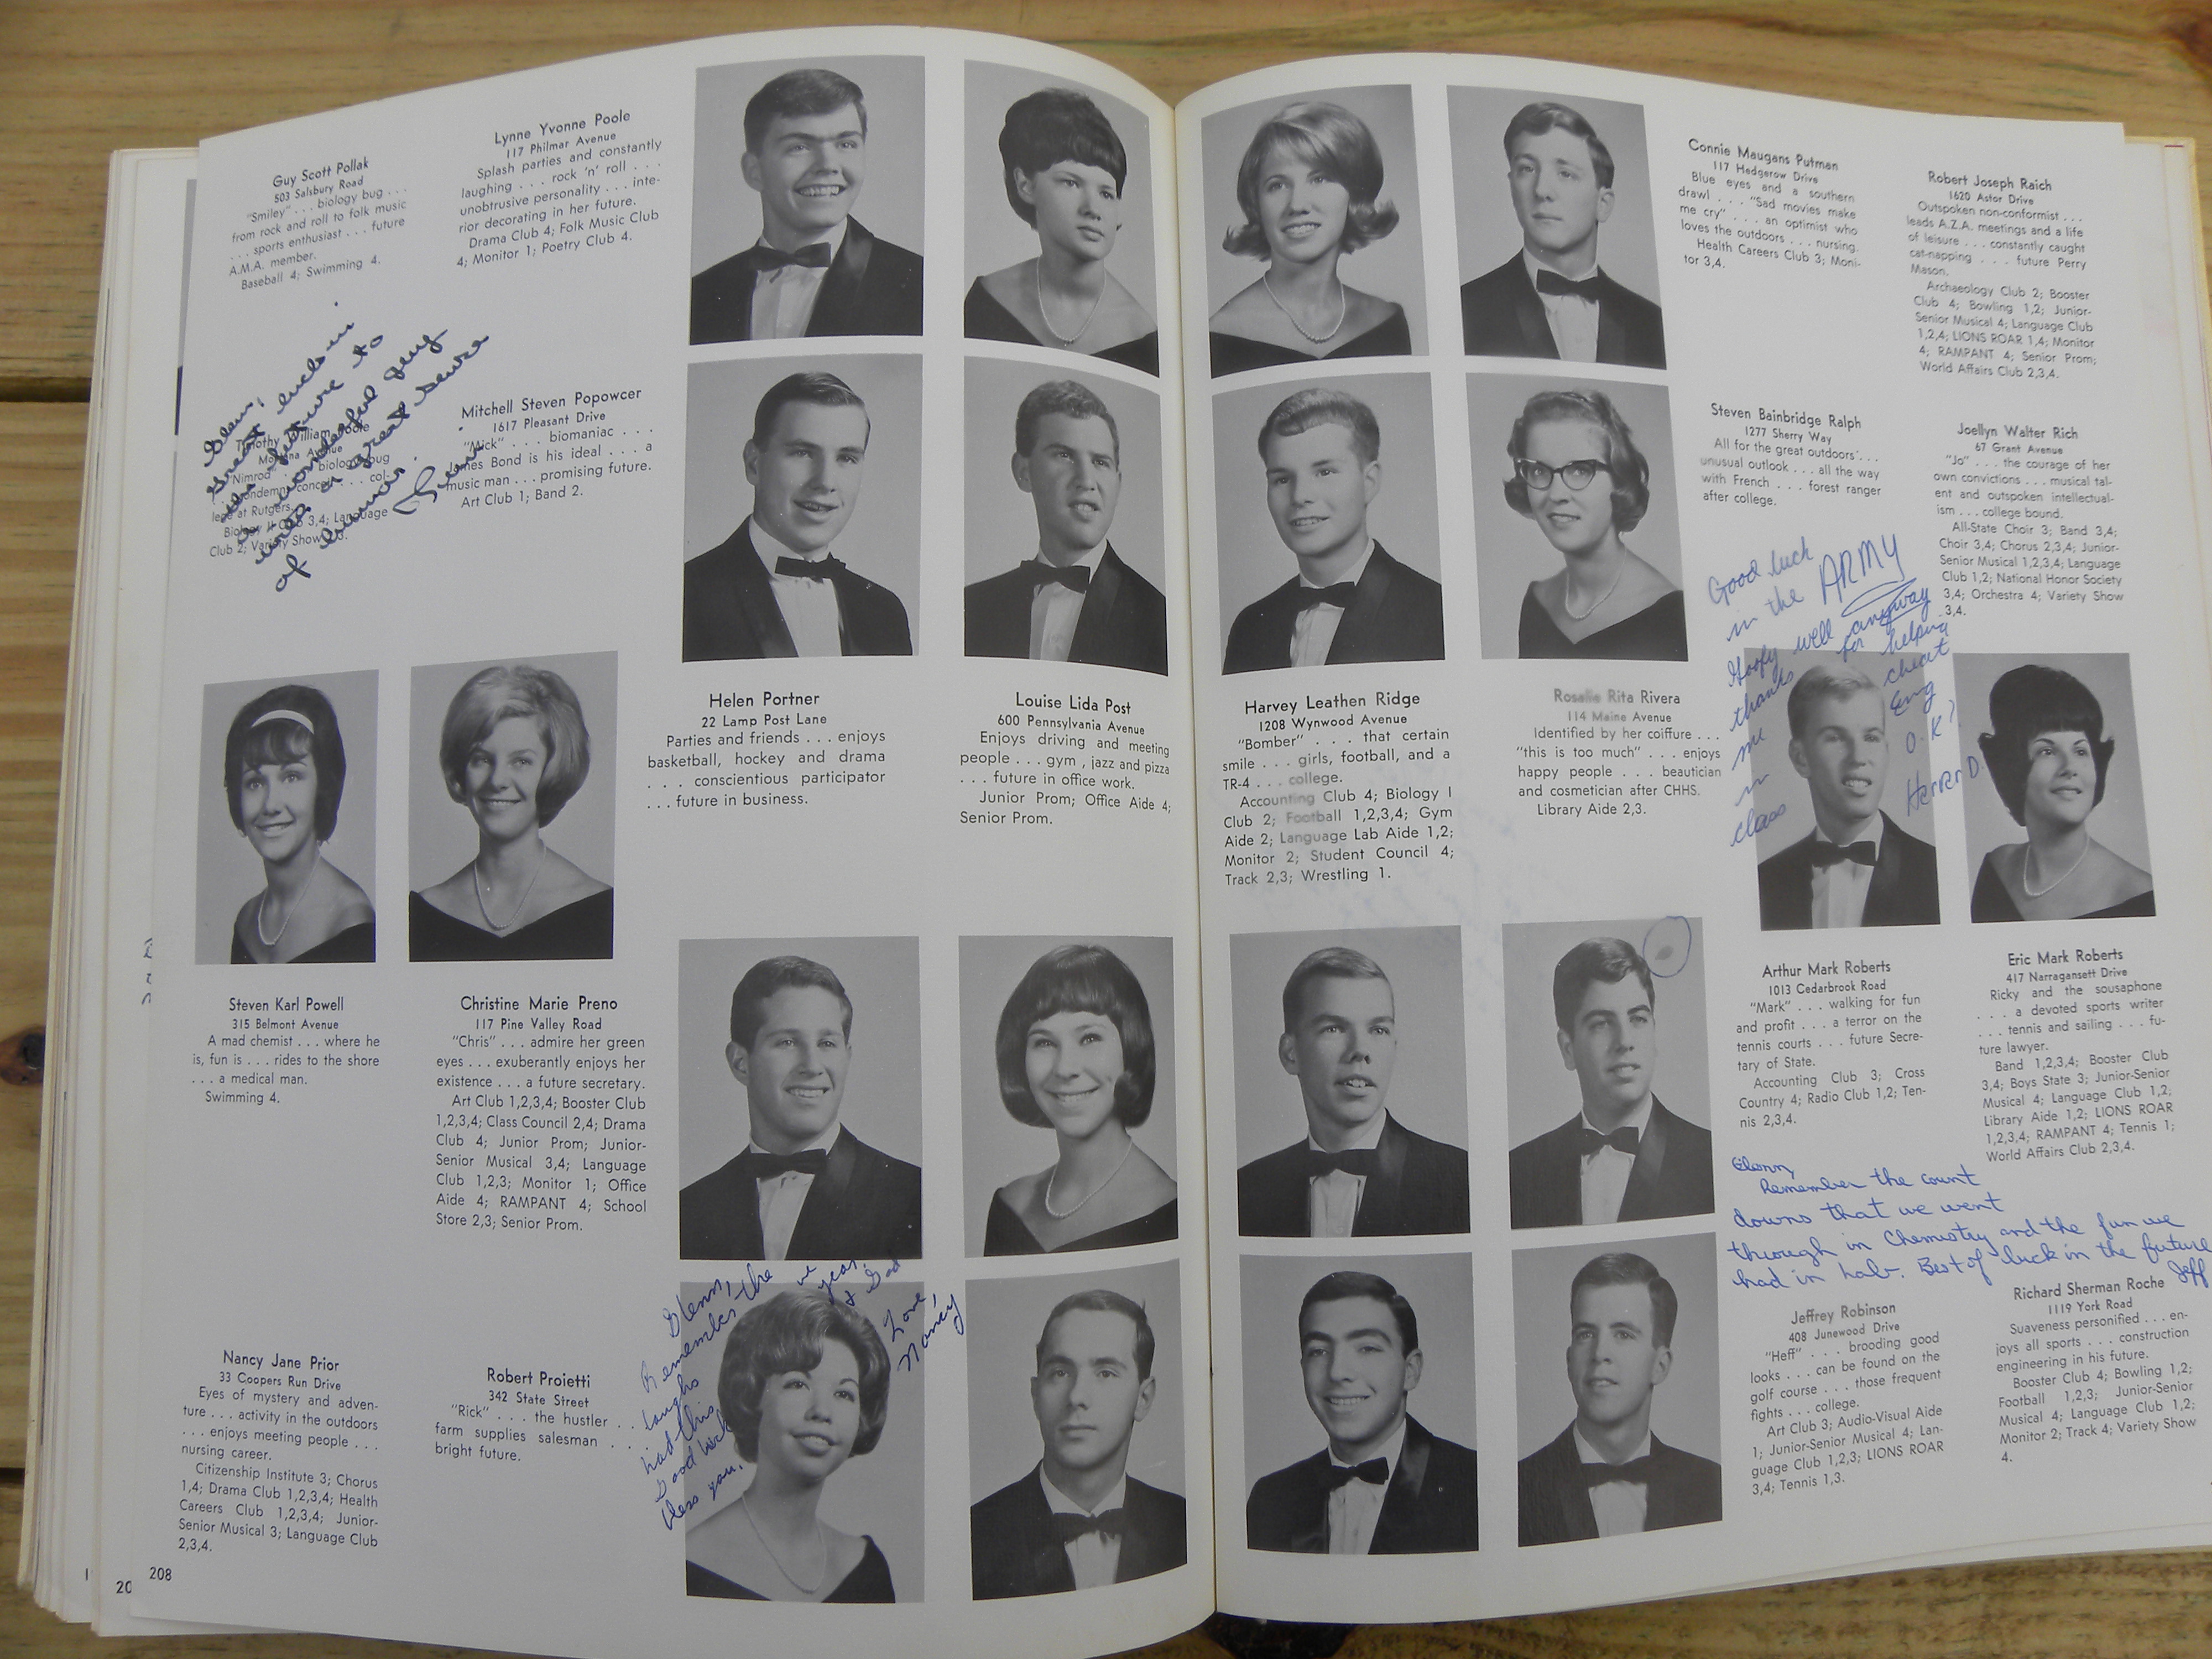 Guy Scott Pollak
503 Salsbury Road
"Smiley" . . . biology bug . . .
from rock and roll to folk music
. . . sports enthusiast . . . future
A.M.A. member.
Baseball 4; Swimming 4.
Lynne Yvonne Poole
117 Philmar Avenue
Splash parties and constantly
laughing . . . rock 'n' roll . . .
unobtrusive personality . . . inte-
rior decorating in her future.
Drama Club 4; Folk Music Club
4; Monitor 1; Poetry Club 4.
Glenn,
Great luck in
the future to
a wonderful guy
with a great sense
of humor.
Timothy William Poole
Avenue
"Nimrod" . . . biology bug
. . . col-
lege at Rutgers.
Biology II Club 3,4; Language
Club 2; Variety Show 3.
Mitchell Steven Popowcer
1617 Pleasant Drive
"Mick" . . . biomaniac . . .
James Bond is his ideal . . . a
music man . . . promising future.
Art Club 1; Band 2.
Helen Portner
22 Lamp Post Lane
Parties and friends . . . enjoys
basketball, hockey and drama
. . . conscientious participator
. . . future in business.
Louise Lida Post
600 Pennsylvania Avenue
Enjoys driving and meeting
people . . . gym , jazz and pizza
. . . future in office work.
Junior Prom; Office Aide 4;
Senior Prom.
Steven Karl Powell
315 Belmont Avenue
A mad chemist . . . where he
is, fun is . . . rides to the shore
. . . a medical man.
Swimming 4.
Christine Marie Preno
117 Pine Valley Road
"Chris" . . . admire her green
eyes . . . exuberantly enjoys her
existence . . . a future secretary.
Art Club 1,2,3,4; Booster Club
1,2,3,4; Class Council 2,4; Drama
Club 4; Junior Prom; Junior-
Senior Musical 3,4; Language
Club 1,2,3; Monitor 1; Office
Aide 4; RAMPANT 4; School
Store 2,3; Senior Prom.
Nancy Jane Prior
33 Coopers Run Drive
Eyes of mystery and adven-
ture . . . activity in the outdoors
. . . enjoys meeting people . . .
nursing career.
Citizenship Institute 3; Chorus
1,4; Drama Club 1,2,3,4; Health
Careers Club 1,2,3,4; Junior-
Senior Musical 3; Language Club
2,3,4.
Robert Proietti
342 State Street
"Rick" . . . the hustler . .
farm supplies salesman . .
bright future.
Glenn,
Remember the
laughs we
had this year.
Good luck & God
bless you.
Love,
Nancy
208
20
Connie Maugans Putman
117 Hedgerow Drive
Blue eyes and a southern
drawl . . . "Sad movies make
me cry" . . . an optimist who
loves the outdoors . . . nursing.
Health Careers Club 3; Moni-
tor 3,4.
Robert Joseph Raich
1620 Astor Drive
Outspoken non-conformist . . .
leads A.Z.A. meetings and a life
of leisure . . . constantly caught
cat-napping . . . future Perry
Mason.
Archaeology Club 2; Booster
Club 4; Bowling 1,2; Junior-
Senior Musical 4; Language Club
1,2,4; LIONS ROAR 1,4; Monitor
4; RAMPANT 4; Senior Prom;
World Affairs Club 2,3,4.
Steven Bainbridge Ralph
1277 Sherry Way
All for the great outdoors . . .
unusual outlook . . . all the way
with French . . . forest ranger
after college.
Joellyn Walter Rich
67 Grant Avenue
"Jo" . . . the courage of her
own convictions . . . musical tal-
ent and outspoken intellectual-
ism . . . college bound.
All-State Choir 3; Band 3,4;
Choir 3,4; Chorus 2,3,4; Junior-
Senior Musical 1,2,3,4; Language
Club 1,2; National Honor Society
3,4; Orchestra 4; Variety Show
3,4.
Good luck
in the ARMY
Goofy well anyway
thanks for helping
me cheat
in Eng
class O.K?
Harvey Leathen Ridge
1208 Wynwood Avenue
"Bomber" . . . that certain
smile . . . girls, football, and a
TR-4 . . . college.
Accounting Club 4; Biology I
Club 2; Football 1,2,3,4; Gym
Aide 2; Language Lab Aide 1,2;
Monitor 2; Student Council 4;
Track 2,3; Wrestling 1.
Rosalie Rita Rivera
114 Maine Avenue
Identified by her coiffure . . .
"this is too much" . . . enjoys
happy people . . . beautician
and cosmetician after CHHS.
Library Aide 2,3.
Arthur Mark Roberts
1013 Cedarbrook Road
"Mark" . . . walking for fun
and profit . . . a terror on the
tennis courts . . . future Secre-
tary of State.
Accounting Club 3; Cross
Country 4; Radio Club 1,2; Ten-
nis 2,3,4.
Eric Mark Roberts
417 Narragansett Drive
Ricky and the sousaphone
. . . a devoted sports writer
. . . tennis and sailing . . . fu-
ture lawyer.
Band 1,2,3,4; Booster Club
3,4; Boys State 3; Junior-Senior
Musical 4; Language Club 1,2;
Library Aide 1,2; LIONS ROAR
1,2,3,4; RAMPANT 4; Tennis 1;
World Affairs Club 2,3,4.
Glenn,
Remember the count
downs that we went
through in Chemistry and the fun we
had in Lab. Best of luck in the future
Jeff
Jeffrey Robinson
408 Junewood Drive
"Heff" . . . brooding good
looks . . . can be found on the
golf course . . . those frequent
fights . . . college.
Art Club 3; Audio-Visual Aide
1; Junior-Senior Musical 4; Lan-
guage Club 1,2,3; LIONS ROAR
3,4; Tennis 1,3.
Richard Sherman Roche
1119 York Road
Suaveness personified . . . en-
joys all sports . . . construction
engineering in his future.
Booster Club 4; Bowling 1,2;
Football 1,2,3; Junior-Senior
Musical 4; Language Club 1,2;
Monitor 2; Track 4; Variety Show
4.